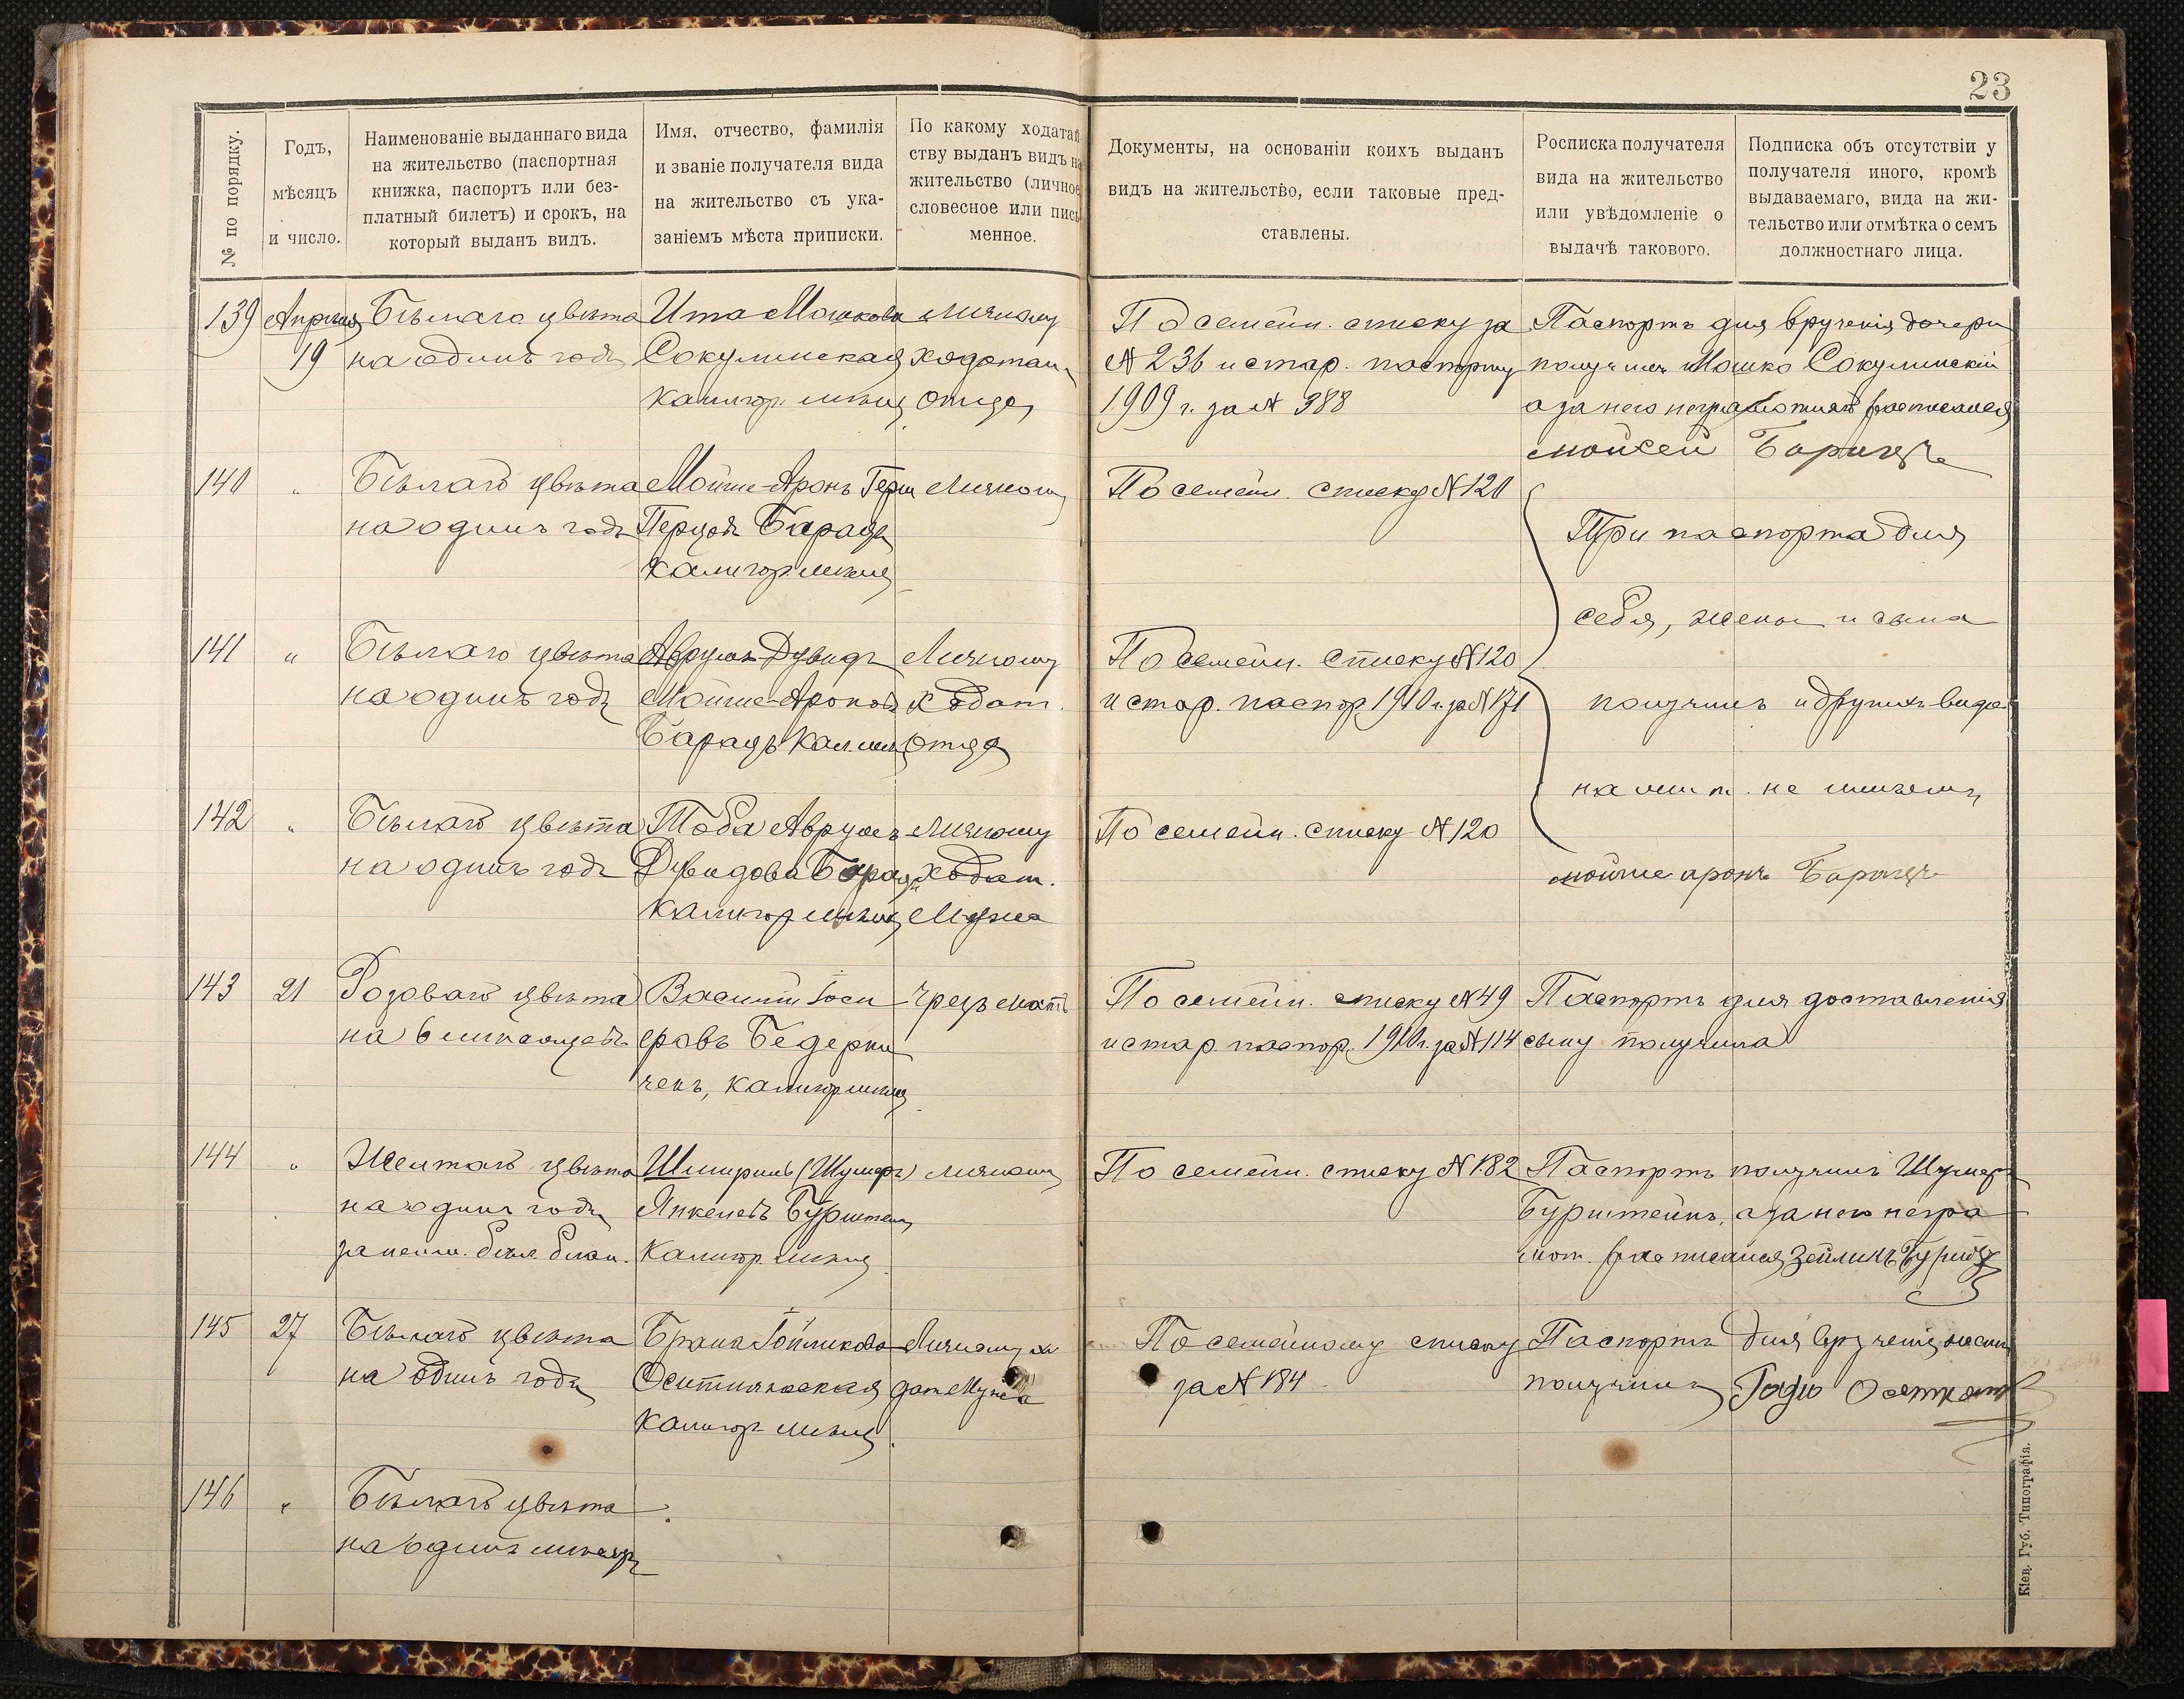 23
№ по порядку.
Годъ,
мѣсяцъ
и число.
Наименованіе выданнаго вида
на жительство (паспортная
книжка, паспортъ или без-
платный билетъ) и срокъ, на
который выданъ видъ.
Имя, отчество, фамилія
и званіе получателя вида
на жительство съ ука-
заніемъ мѣста приписки.
По какому ходатай
ству выданъ видъ на
жительство (личное
словесное или пись
менное.
Документы, на основаніи коихъ выданъ
видъ на жительство, если таковые пред-
ставлены.
Росписка получателя
вида на жительство
или увѣдомленіе о
выдачѣ такового.
Подписка объ отсутствіи у
получателя иного, кромѣ
выдаваемаго, вида на жи-
тельство или отмѣтка о семъ
должностнаго лица.
139
Апрѣля
19
Бѣлаго цвѣта
на одинъ годъ
Ита Мошкова
Сокулинская
Калигор. мѣщ.
Личному
ходатай
отца
По семейн. списку за
№ 236 и стар. паспорту
1909 г. за № 388
Паспортъ для врученія дочери
получилъ Мошко Сокулинскій
а за него неграмотнаго расписался
Мойсей Барацъ
140
"
Бѣлаго цвѣта
на одинъ годъ
Мойше-Аронъ Герш
Перцов. Барацъ
Калигор. мѣщ.
Личному
По семейн. списку № 120
Три паспорта для
себя, жены и сына
получилъ и другихъ видо
на жит. не имѣемъ
мойше аронъ Барацъ
141
"
Бѣлаго цвѣта
на одинъ годъ
Аврумъ-Дувидъ
Мойше-Аронов.
Барацъ Кал. мѣщ.
Личному
ходат.
отца
По семейн. списку № 120
и стар. паспор. 1910 г. за № 171
142
"
Бѣлаго цвѣта
на одинъ годъ
Тоба Аврумъ
Дувидова Барацъ
Калигор. мѣщ.
Личному
ходат.
Мужа
По семейн. списку № 120
143
21
Розоваго цвѣта
на 6 мѣсяцевъ
Василій Іоси
фовъ Бедерни
ченъ, Калигор. мѣщ.
Чрезъ мать
По семейн. списку № 49
и стар. паспор. 1910 г. за № 114
Паспортъ для доставленія
сыну получила
144
"
Желтаго цвѣта
на одинъ годъ
за неим. бѣл. блан.
(Шумеръ)
Янкелевъ Бурштейн
Калигор. мѣщ.
Личному
По семейн. списку № 182
Паспортъ получилъ Шумеръ
Бурштейнъ, а за него негра
мот. расписался Зейликъ
145
27
Бѣлаго цвѣта
на одинъ годъ
Калигор. мѣщ.
Личному хо
дат. Мужа
По семейному списку
за № 184
Паспортъ для врученія жены
получилъ
146
"
Бѣлаго цвѣта
на одинъ мѣсяцъ
Кіев. Губ. Типографія.